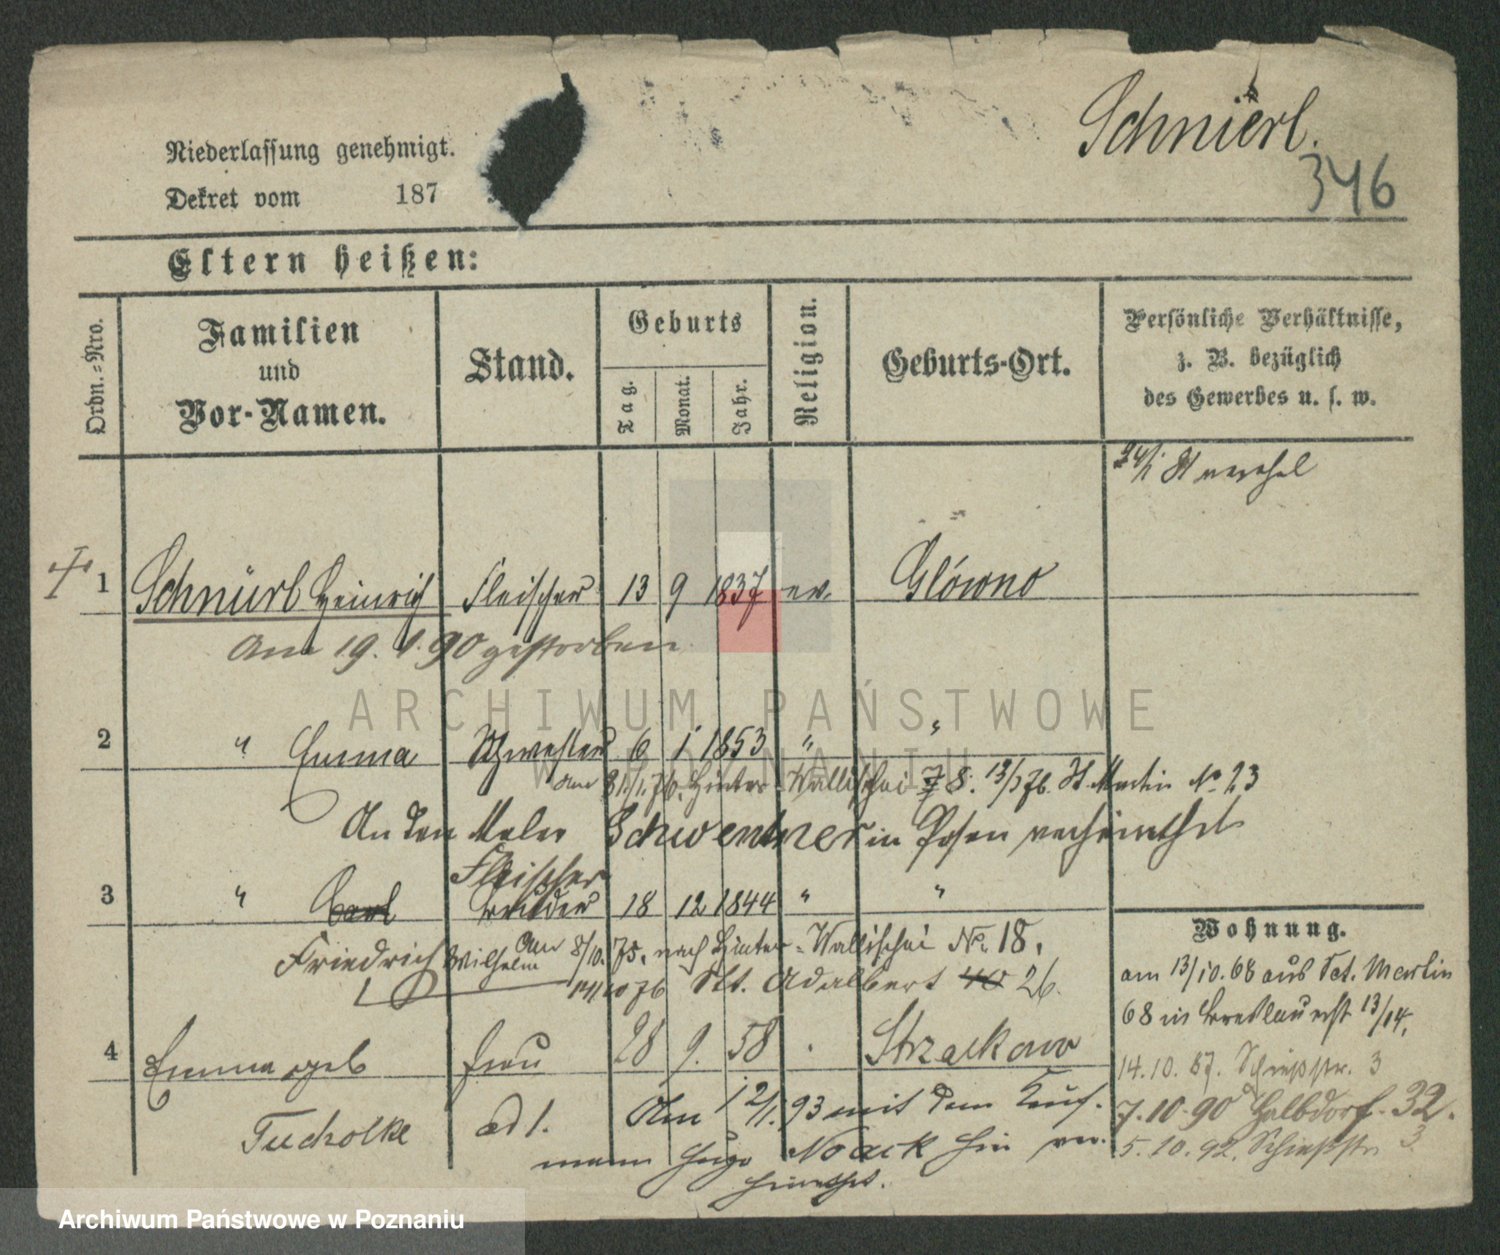 Schnierl.
346
Niederlassung genehmigt.
Dekret vom 187
Eltern heißen:
Ordn.-Nro.
Familien und Vor-Namen.
Stand.
Geburts
Tag.
Monat.
Jahr.
Religion.
Geburts-Ort.
Persönliche Verhältnisse, z. B. bezüglich des Gewerbes u. s. w.
1 Schnürl Heinrich Fleischer 13 9 1837 ev. Glówno
Am 19. 1. 90 gestorben
2 " Emma Schwester 6 1 1853 " "
am 31./1. 76. Hinter Wallischei 7 8. 13/3 76. St. Martin No. 23
An den Maler Schwentner in Posen verheirathet
Fleischer
3 " Carl Bruder 18 12 1844 " "
Friedrich Wilhelm am 8/10. 75. nach Hinter-Wallischei No. 18.
14/10 76 St. Adalbert 40 26.
4 Emma geb Frau 28 9. 58 . Strzalkowo
Tucholke ad 1. Am 12/1. 93 mit dem Kauf-
mann Hugo Noack hier ver-
heirathet.
Wohnung.
am 13/10. 68 aus Sct. Martin
68 in Breslau erst 13/14.
14. 10. 87. Schießstr. 3
7. 10. 90 Halbdorf. 32.
5. 10. 92. Schießstr. 3
ARCHIWUM PAŃSTWOWE
W POZNANIU
Archiwum Państwowe w Poznaniu